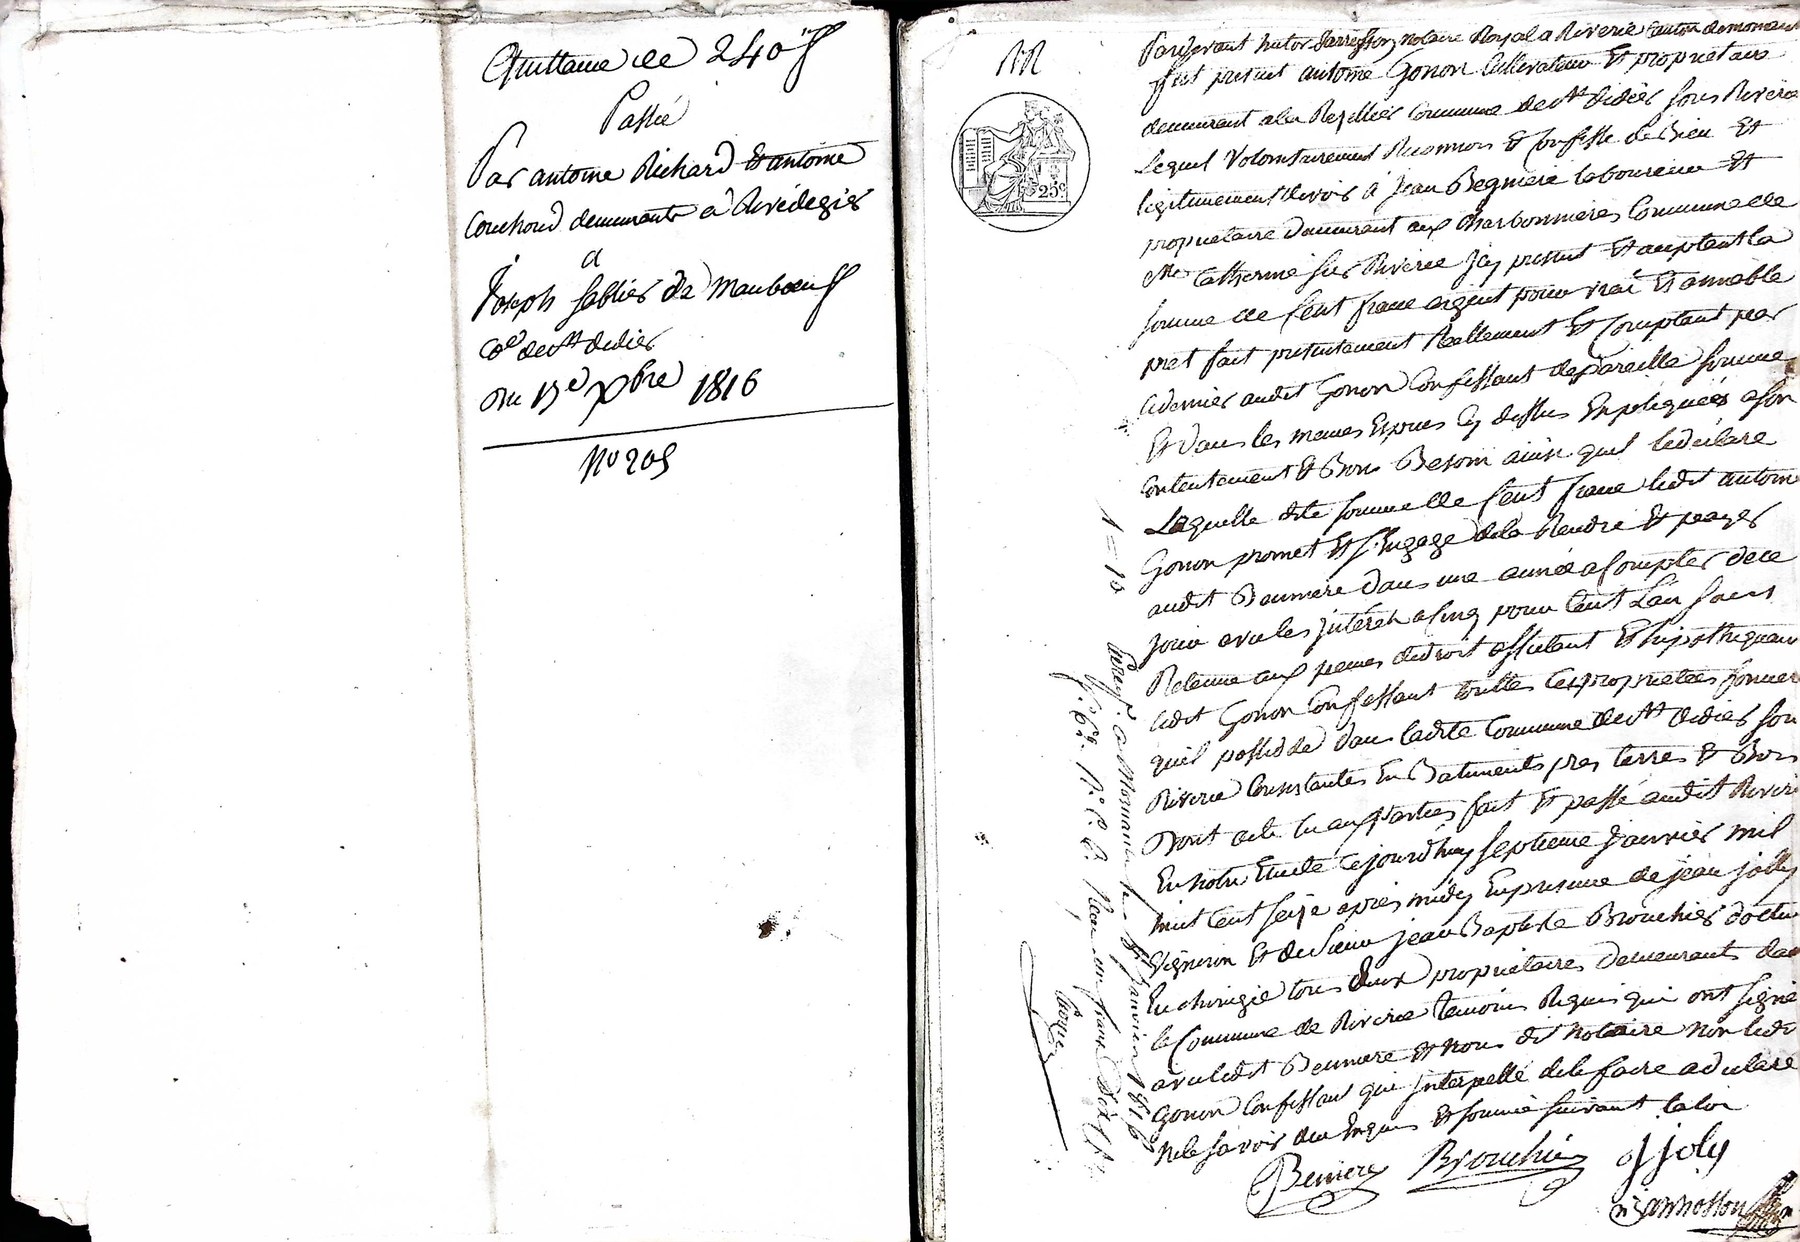 Quittance de 240 ff
Passé
Par antoine Richard Et antoine
Couchoud demeurants à Rivédegier
a
Joseph Sablier De Maubœuff
Cne de St didier
Du 13e Xbre 1816
No 205
25 c
Pardevant victor Jannosson, notaire Royal a Riverie Canton de mornant
fut present antoine Gonon Cultivateur Et proprietaire
demeurant alu Commune de St didier Sous Riverie
Lequel Volontairement Reconnoit Et Confesse de Bien Et
legitimement devoir à Jean laboureur Et
proprietaire demeurant aux Charbonnieres Commune de
Ste Catherine sur Riverie Icy present Et acceptant la
somme de Cent franc argent pour vrai Et amiable
pret fait presentement Réellement Et Comptant par
cedernier audit Gonon Confessant depareille somme
Et dans les memes Especes Cy dessus Expliquées a son
Contentement Et Bon Besoin ainsi quil le declare
Laquelle dite somme de Cent franc ledit antoine
Gonon promet Et S'Engage dela Rendre Et payer
audit Benniere dans une année a Compter de ce
Jour avec les Interets a Cinq pour Cent L'an Sans
Retenue aux peines de droit affectant Et hipothequant
ledit Gonon Confessant toutes ces proprietées foncier
quil possede dans ladite Commune de St didier Sou
Riverie Consistantes En Batiments pres terres Et Bois
Dont acte lu aux parties fait Et passé audit Riverie
En notre Etude Cejourd'huy septieme Janvier mil
huit Cent seize apres midy En presence de jean jolly
Vigneron Et de sieur jean Baptiste Brouchier docteur
En chirurgie tous deux proprietaires demeurants dan
la Commune de Riverie temoins Requis qui ont signé
avec ledit Benniere Et nous dit notaire non ledit
Gonon Confessant qui Interpellé dele faire a declare
Nele savoir de ce Enquis Et sommé suivant la loi
Beniere Brouchier J joly
Jannosson
1 = 10
Enreg. a Mornant le Janvier 1816
f. 69. R. C. 6. Reçu un franc Dix C.